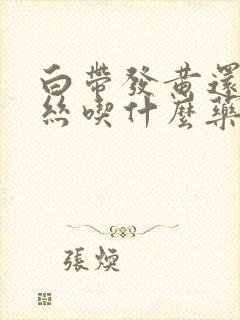 白帶發黃還
絲喫什麼藥
張煐